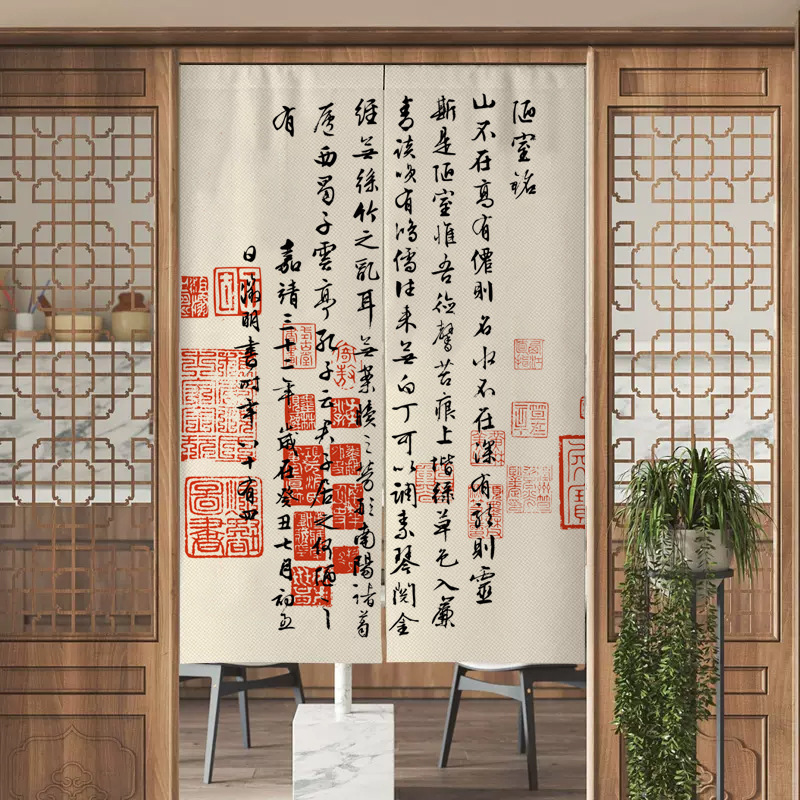 陋室銘
山不在高有僊則名水不在深有龍則靈
斯是陋室惟吾德馨苔痕上階綠草色入簾
青談笑有鴻儒往來無白丁可以調素琴閱金
經無絲竹之亂耳無案牘之勞形南陽諸葛
廬西蜀子雲亭孔子云夫子居之何陋之
有
嘉靖三十二年歲在癸丑七月初五
日徵明書時年八十有四